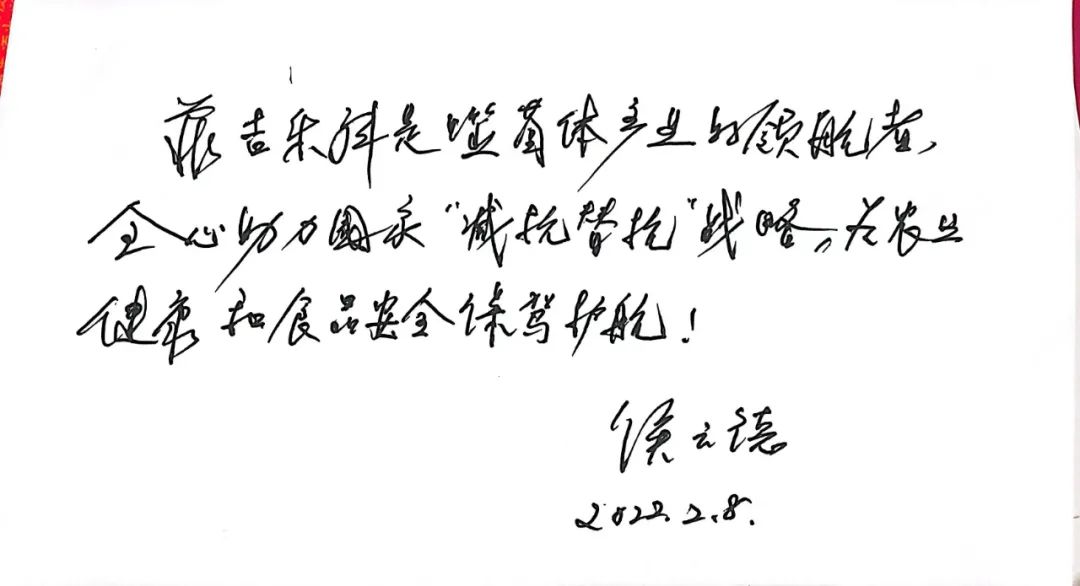 菲吉乐科是噬菌体产业的领航者，
全心助力国家“减抗替抗”战略，为农业
健康和食品安全保驾护航！
侯云德
2022.2.8.